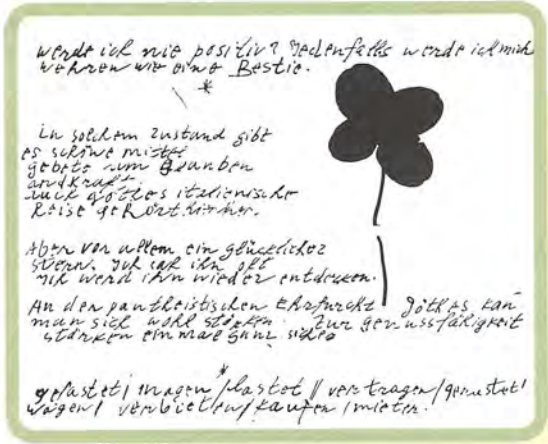 werde ich nie positiv? Jedenfalls werde ich mich
wehren wie eine Bestie.
*
in solchem Zustand gibt
es schöne mittel
gebete um Glauben
und kraft
auch göthes italienische
Reise gehört hierher.
Aber vor allem ein glücklicher
stern. Ich sah ihn oft
ich werd ihn wieder entdecken.
An der pantheistischen Ehrfurcht göthes kan
man sich wohl stärken. Zur genussfähigkeit
stärken einmal ganz sicher
*
gefastet / magen / / vertragen /
wagen / verbieten / kaufen / mieten.